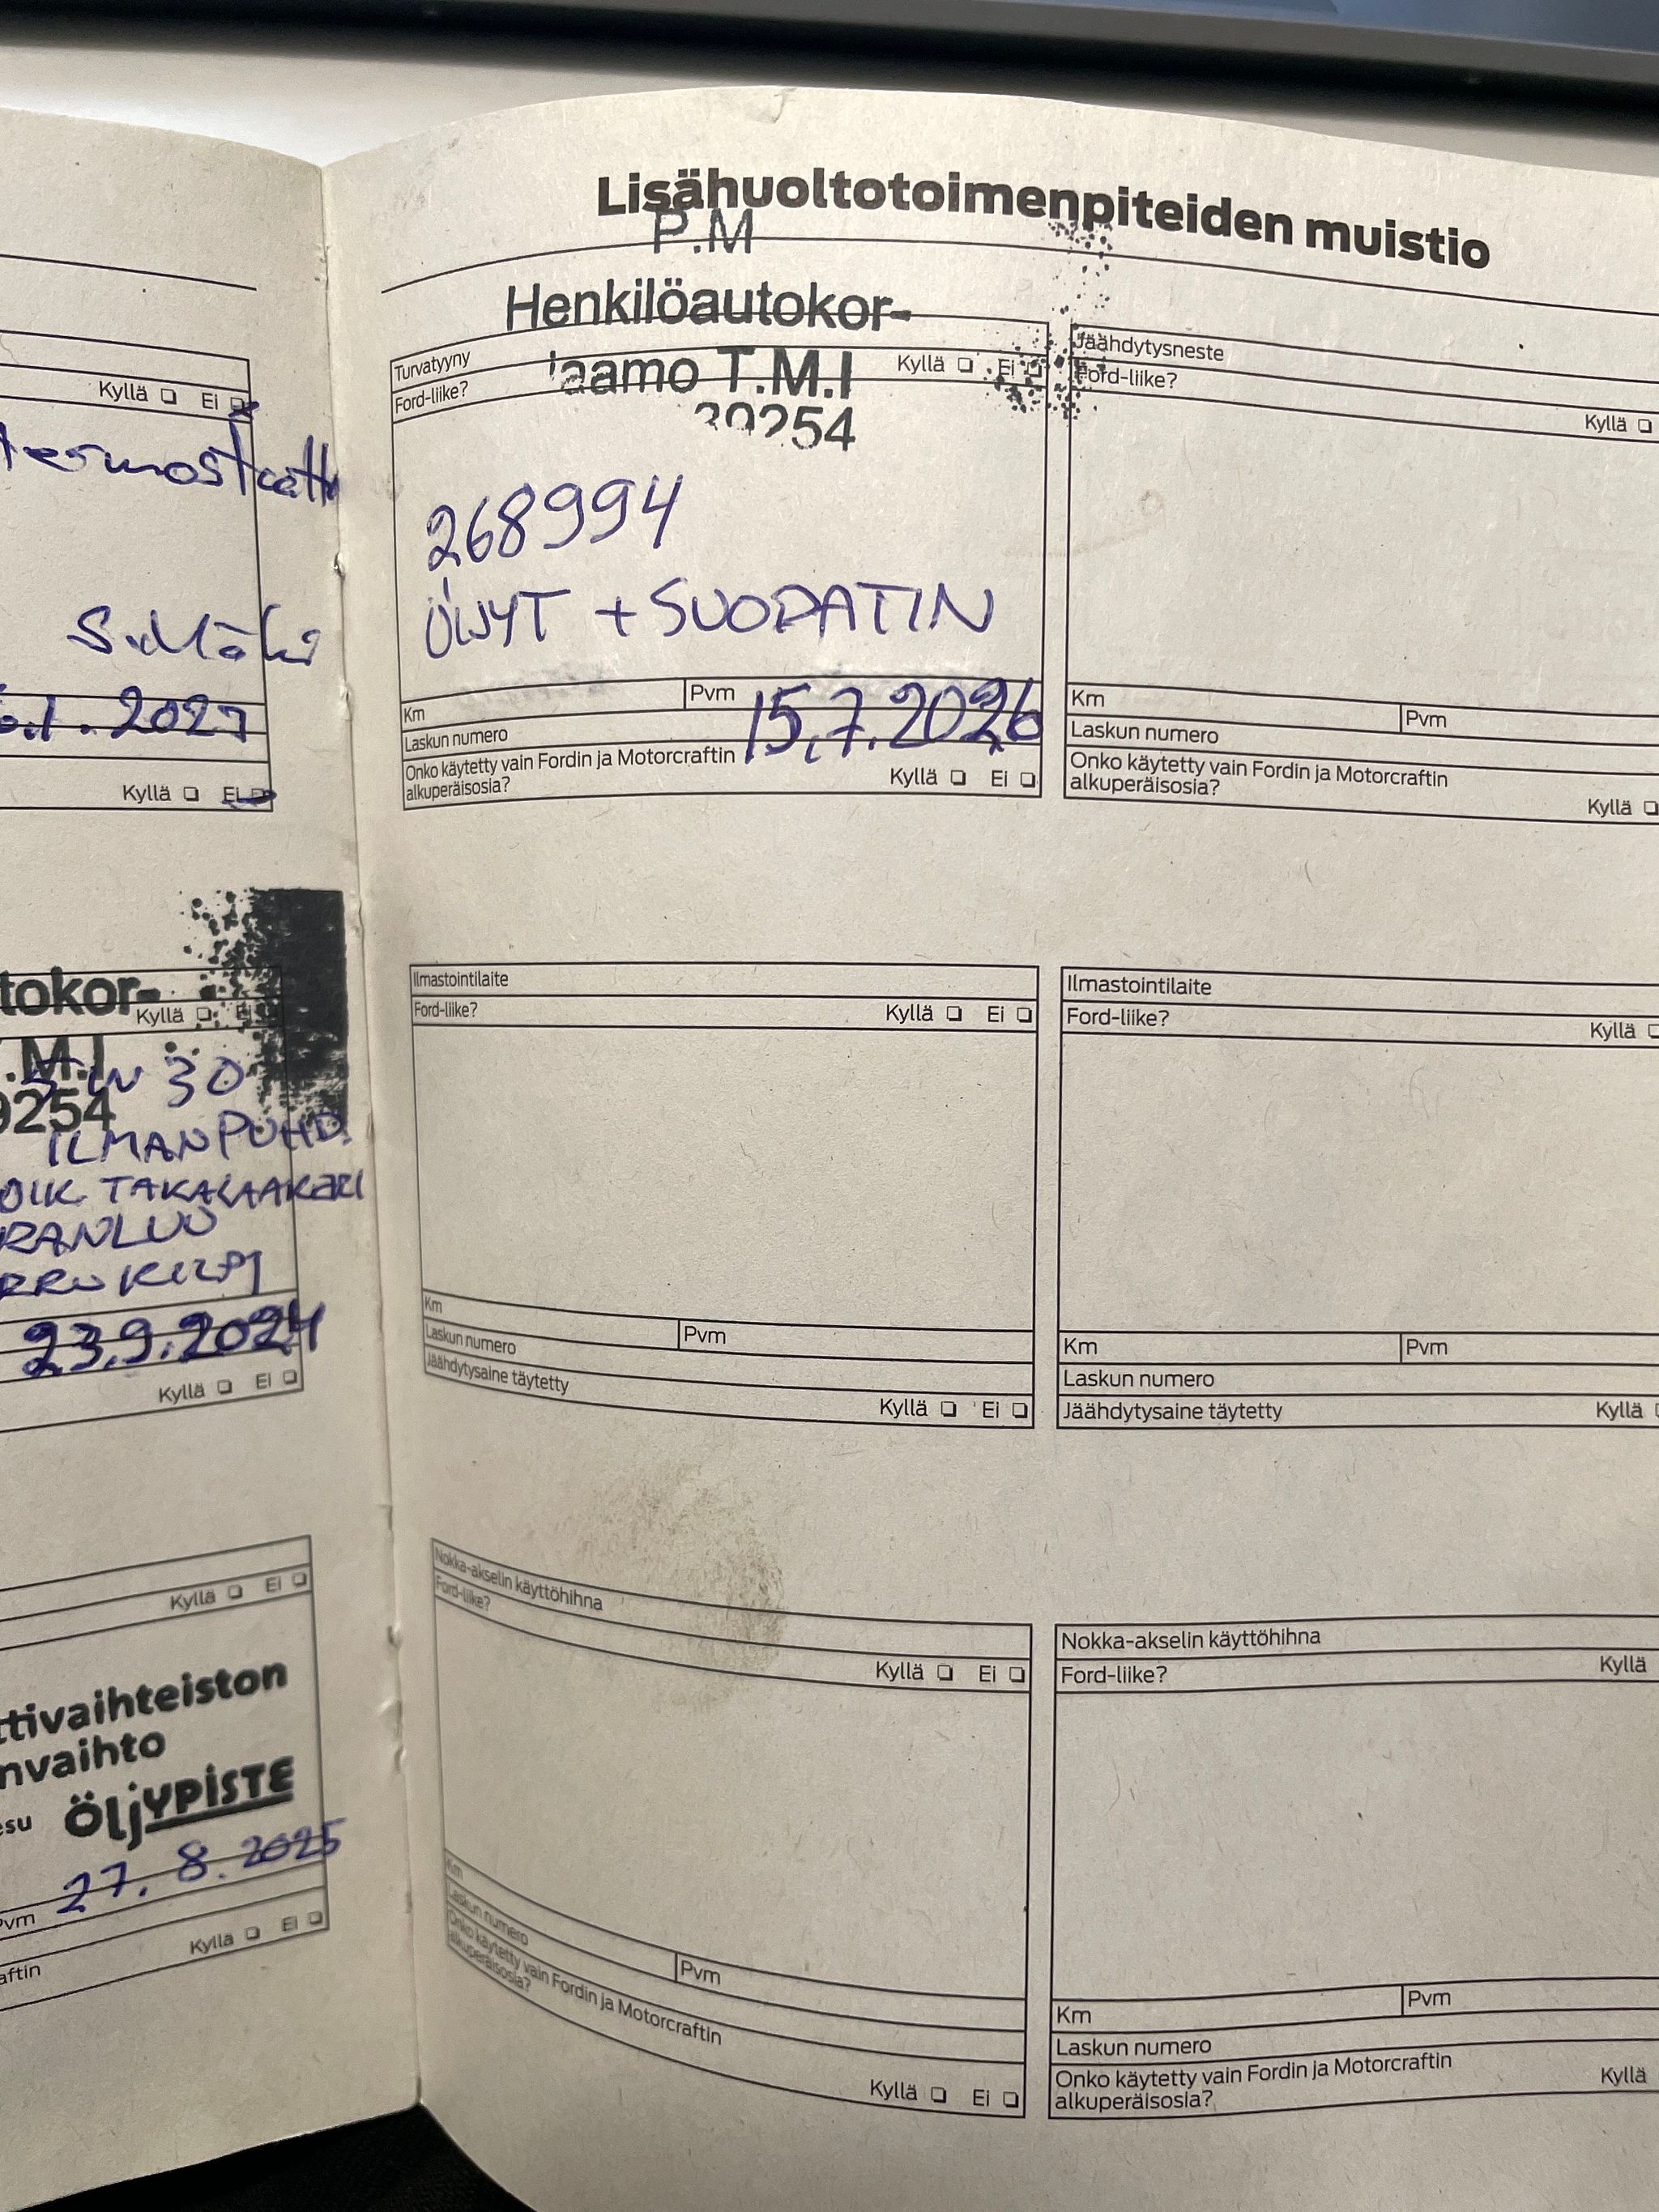 Kyllä Ei
termostaatti
S.Mäki
.1.2027
Kyllä Ei
tokor-
Kyllä Ei
.M.I
5W30
9254
ILMANPUHD.
OIK. TAKALAAKERI
RANLUO
RRUKILPI
23.9.2024
Kyllä Ei
Kyllä Ei
ttivaihteiston
nvaihto
esu ÖljYPISTE
Pvm 27.8.2025
Kyllä Ei
aftin
Lisähuoltotoimenpiteiden muistio
P.M
Henkilöautokor-
Turvatyyny
jaamo T.M.I
Ford-liike? Kyllä Ei
39254
268994
ÖLJYT + SUODATIN
Km Pvm 15.7.2026
Laskun numero
Onko käytetty vain Fordin ja Motorcraftin
alkuperäisosia? Kyllä Ei
Jäähdytysneste
Ford-liike? Kyllä
Km Pvm
Laskun numero
Onko käytetty vain Fordin ja Motorcraftin
alkuperäisosia? Kyllä
Ilmastointilaite
Ford-liike? Kyllä Ei
Km Pvm
Laskun numero
Jäähdytysaine täytetty Kyllä Ei
Ilmastointilaite
Ford-liike? Kyllä
Km Pvm
Laskun numero
Jäähdytysaine täytetty Kyllä
Nokka-akselin käyttöhihna
Ford-liike? Kyllä Ei
Km Pvm
Laskun numero
Onko käytetty vain Fordin ja Motorcraftin
alkuperäisosia? Kyllä Ei
Nokka-akselin käyttöhihna
Ford-liike? Kyllä
Km Pvm
Laskun numero
Onko käytetty vain Fordin ja Motorcraftin
alkuperäisosia? Kyllä